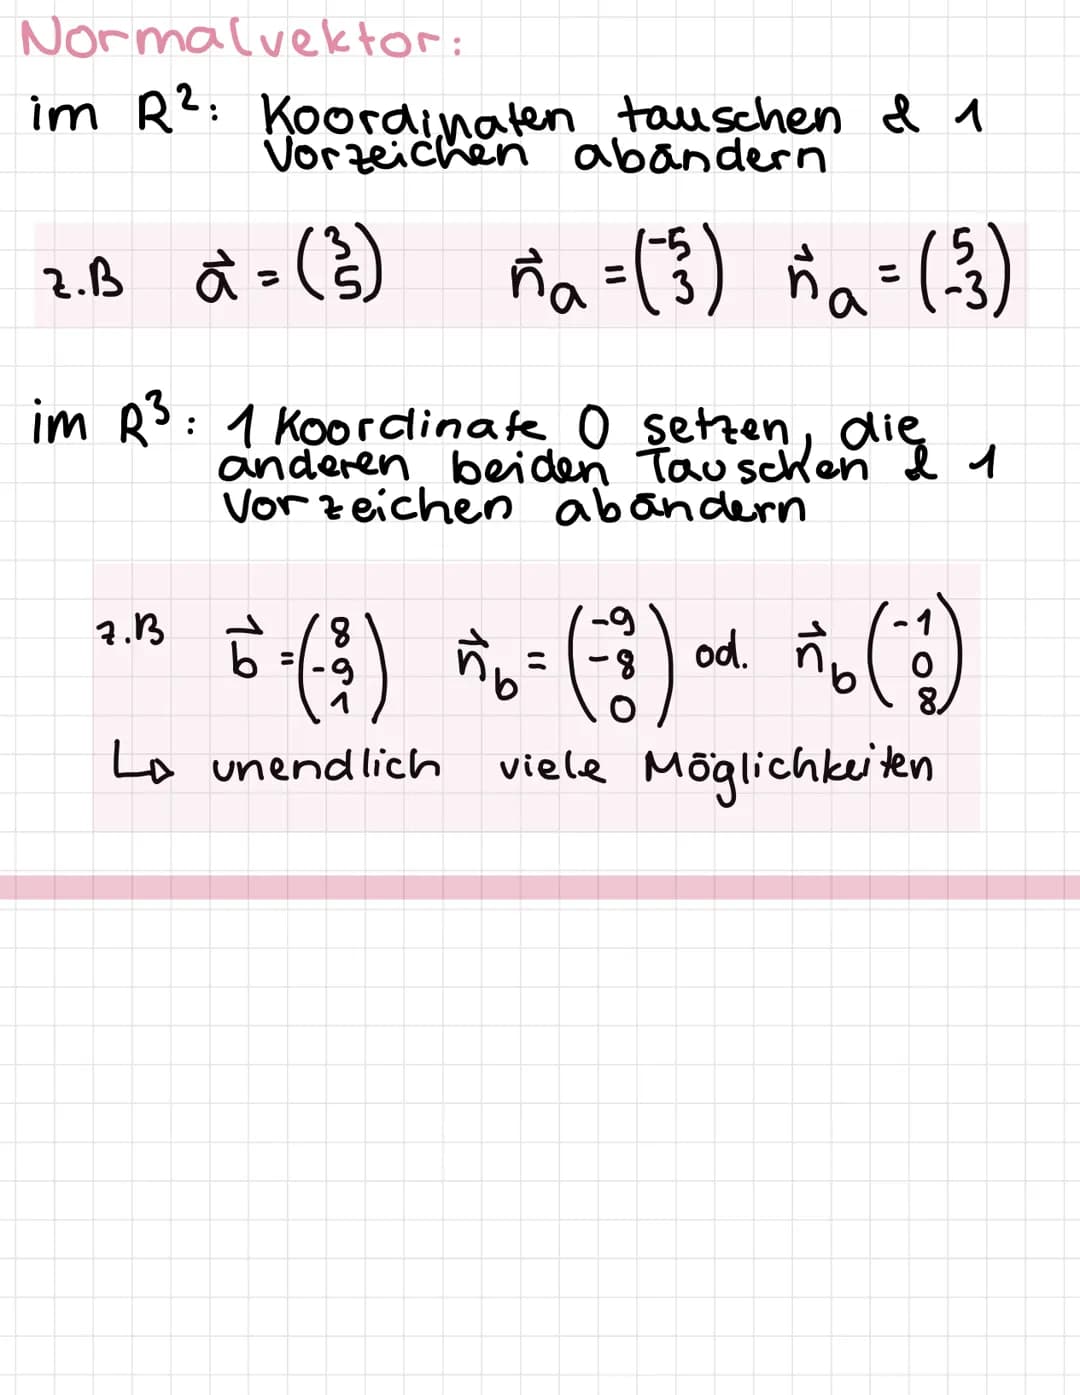 Normalvektor:
im R²: Koordinaten tauschen & 1
Vorzeichen abändern
z.B a⃗ = (3 5) n⃗a = (-5 3) n⃗a = (5 -3)
im R³: 1 Koordinate 0 setzen, die
anderen beiden Tauschen & 1
Vorzeichen abändern
z.B b⃗ = (8 -9 1) n⃗b = (-9 -8 0) od. n⃗b (-1 0 8)
↳ unendlich viele Möglichkeiten